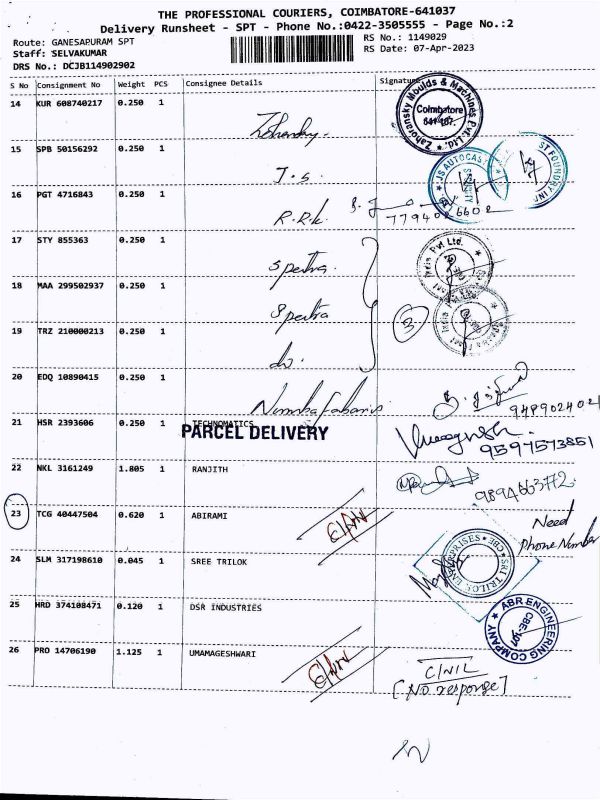 THE PROFESSIONAL COURIERS, COIMBATORE-641037
Delivery Runsheet - SPT - Phone No.:0422-3505555 - Page No.:2
Route: GANESAPURAM SPT
RS No.: 1149029
Staff: SELVAKUMAR
RS Date: 07-Apr-2023
DRS No.: DCJB114902902
S No Consignment No Weight PCS Consignee Details Signature
14 KUR 608740217 0.250 1
Zahoransky Moulds & Machines Pvt.Ltd.
Coimbatore
641 107.
15 SPB 50156292 0.250 1 J.S.
JS AUTOCAST
SECURITY
16 PGT 4716843 0.250 1 R.R.k.
17 STY 855363 0.250 1 Spectra
India Pvt Ltd.
18 MAA 299502937 0.250 1 Spectra
3
19 TRZ 210000213 0.250 1 do.
20 EDQ 10890415 0.250 1
21 HSR 2393606 0.250 1 TECHNOMATICS
PARCEL DELIVERY
9597573851
22 NKL 3161249 1.805 1 RANJITH
9894663772
23 TCG 40447504 0.620 1 ABIRAMI
Need
Phone Number
24 SLM 317198610 0.045 1 SREE TRILOK
25 HRD 374108471 0.120 1 DSR INDUSTRIES
ABR ENGINEERING COMPANY
CBE-107
26 PRO 14706190 1.125 1 UMAMAGESHWARI
C/NIL
[No response]